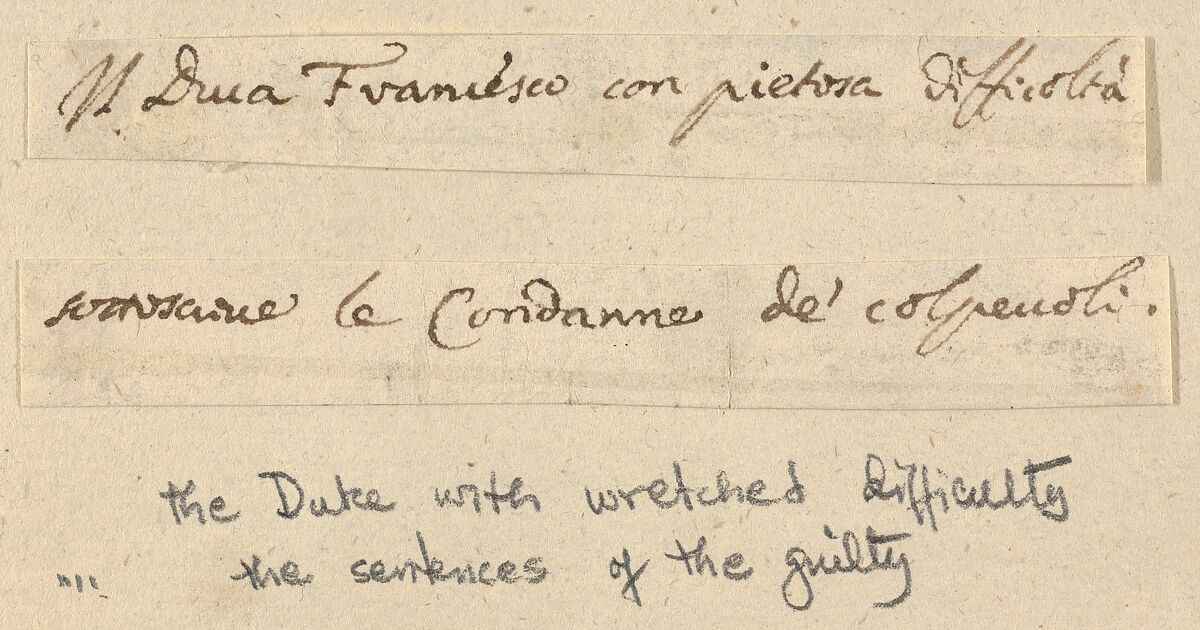 Il Duca Francesco con pietosa difficoltà
sottoscrive le Condanne de' colpevoli.
the Duke with wretched difficulty
"" the sentences of the guilty